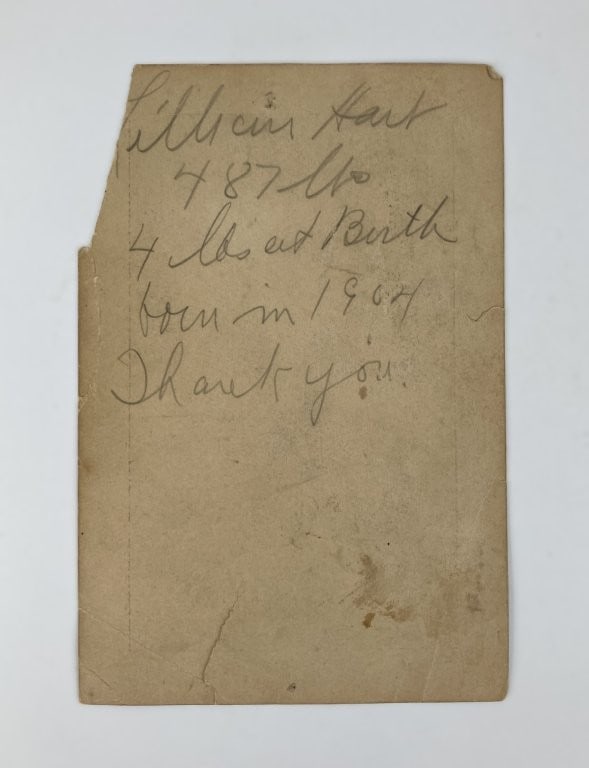 Lillian Hart
487 lbs
4 lbs at Birth
born in 1904
Thank you.